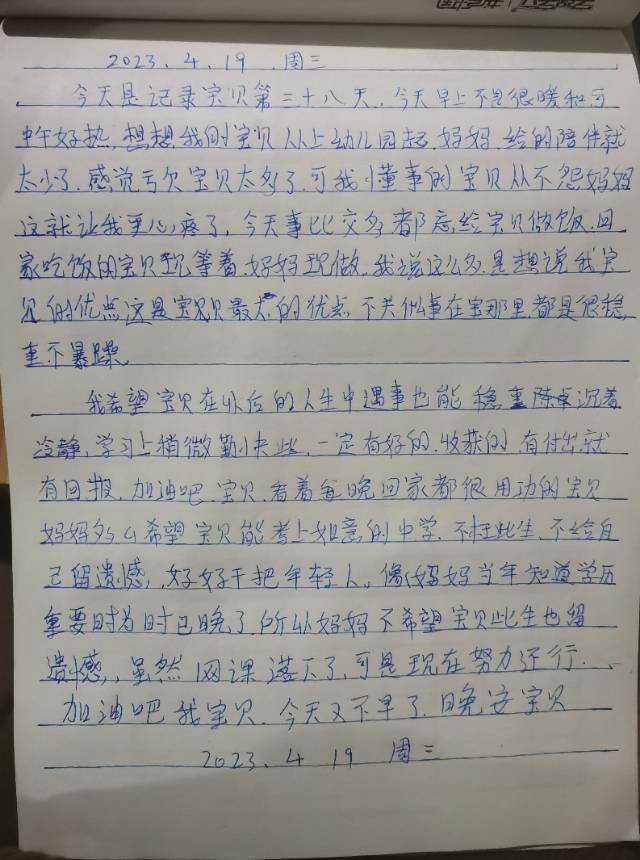 2023.4.19 周三
今天是记录宝贝第三十八天.今天早上不是很暖和可
中午好热.想想我的宝贝从上幼儿园起.妈妈.给的陪伴就
太少了.感觉亏欠宝贝太多了.可我懂事的宝贝从不怨妈妈
这就让我更心疼了.今天事比交多都忘给宝贝做饭.回
家吃饭的宝贝现等着.妈妈现做.我说这么多.是想说我宝
贝的优点这是宝贝最大的优点.不关什么事在宝那里都是很稳
重不暴躁.
我希望宝贝在以后的人生中遇事也能稳重沉着
冷静.学习上稍微勤快些.一定有好的.收获的.有付出就
有回报.加油吧.宝贝.看着每晚回家都很用功的宝贝
妈妈多么希望宝贝能考上如意的中学.不枉此生.不给自
己留遗憾,好好干把年轻人。像妈妈当年知道学历
重要时为时已晚了.所以妈妈不希望宝贝此生也留
遗憾,虽然网课落下了.可是现在努力还行.
加油吧我宝贝.今天又不早了.晚安宝贝
2023.4 19 周三